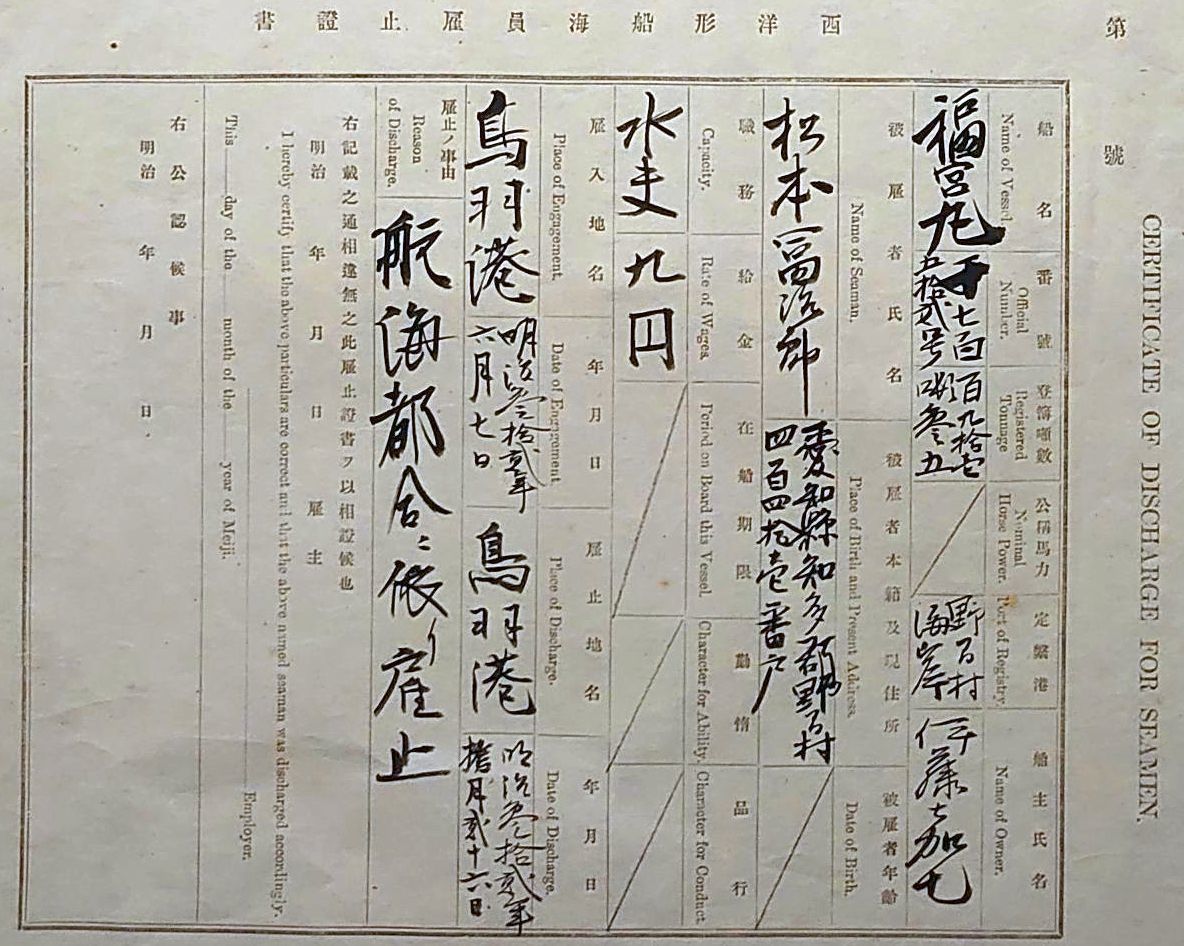 西洋形船海員雇止證書
第 號
CERTIFICATE OF DISCHARGE FOR SEAMEN.
船名
Name of Vessel.
福宮丸
番號
Official Number.
千七百
五拾貳号
登簿噸數
Registered Tonnage
百九拾壱
噸参五
公稱馬力
Nominal Horse Power.
定繫港
Port of Registry.
野間村
海岸
船主氏名
Name of Owner.
伊藤七加七
被雇者氏名
Name of Seaman.
松本冨治郎
被雇者本籍及現住所
Place of Birth and Present Address.
愛知縣知多郡野間村
四百四拾壱番戸
被雇者年齡
Date of Birth.
職務
Capacity.
水夫
給金
Rate of Wages.
九円
在船期限
Period on Board this Vessel.
勤情
Character for Ability.
品行
Character for Conduct
雇入地名
Place of Engagement.
鳥羽港
年月日
Date of Engagement
明治参拾貳年
六月七日
雇止地名
Place of Discharge.
鳥羽港
年月日
Date of Discharge.
明治参拾貳年
拾月貳十六日
雇止ノ事由
Reason of Discharge.
航海都合ニ依り雇止
右記載之通相違無之此雇止證書ヲ以相證候也
明治 年 月 日 雇主
I hereby certify that the above particulars are correct and that the above named seaman was discharged accordingly.
Employer.
This day of the month of the year of Meiji.
右公認候事
明治 年 月 日